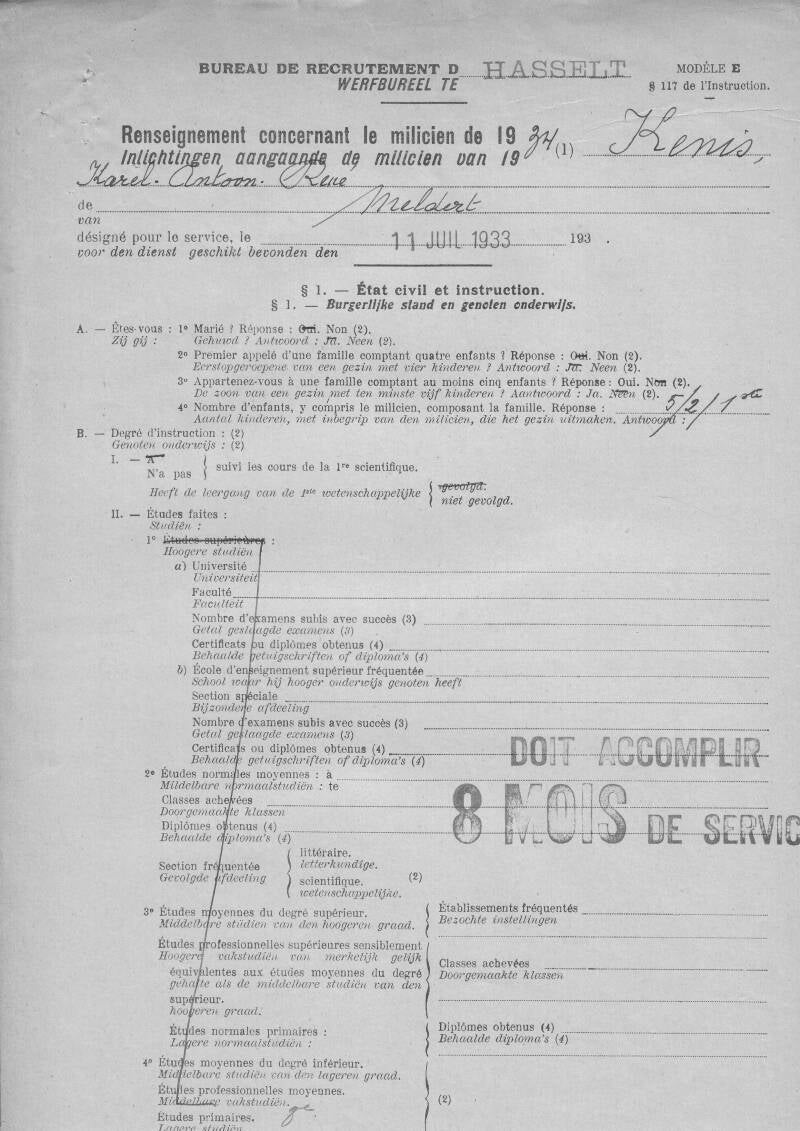 BUREAU DE RECRUTEMENT D HASSELT MODÈLE E
WERFBUREEL TE § 117 de l'Instruction.
Renseignement concernant le milicien de 19 34 (1) Kenis,
Inlichtingen aangaande de milicien van 19
Karel - Antoon - René
de Meldert
van
désigné pour le service, le 11 JUIL 1933 193 .
voor den dienst geschikt bevonden den
§ 1. — État civil et instruction.
§ 1. — Burgerlijke stand en genoten onderwijs.
A. — Êtes-vous : 1º Marié ? Réponse : Oui. Non (2).
Zij gij : Gehuwd ? Antwoord : Ja. Neen (2).
2º Premier appelé d'une famille comptant quatre enfants ? Réponse : Oui. Non (2).
Eerstopgeroepene van een gezin met vier kinderen ? Antwoord : Ja. Neen (2).
3º Appartenez-vous à une famille comptant au moins cinq enfants ? Réponse : Oui. Non (2).
De zoon van een gezin met ten minste vijf kinderen ? Aantwoord : Ja. Neen (2).
4º Nombre d'enfants, y compris le milicien, composant la famille. Réponse : 5/2/1ste
Aantal kinderen, met inbegrip van den milicien, die het gezin uitmaken. Antwoord :
B. — Degré d'instruction : (2)
Genoten onderwijs : (2)
I. — A
N'a pas suivi les cours de la 1re scientifique.
Heeft de leergang van de 1ste wetenschappelijke gevolgd.
niet gevolgd.
II. — Études faites :
Studiën :
1º Études supérieures :
Hoogere studiën
a) Université
Universiteit
Faculté
Faculteit
Nombre d'examens subis avec succès (3)
Getal geslaagde examens (3)
Certificats ou diplômes obtenus (4)
Behaalde getuigschriften of diploma's (4)
b) École d'enseignement supérieur fréquentée
School waar hij hooger onderwijs genoten heeft
Section spéciale
Bijzondere afdeeling
Nombre d'examens subis avec succès (3)
Getal geslaagde examens (3)
Certificats ou diplômes obtenus (4)
Behaalde getuigschriften of diploma's (4)
DOIT ACCOMPLIR
8 MOIS DE SERVIC
2º Études normales moyennes : à
Mildelbare normaalstudiën : te
Classes achevées
Doorgemaakte klassen
Diplômes obtenus (4)
Behaalde diploma's (4)
Section fréquentée
Gevolgde afdeeling
littéraire.
letterkundige.
scientifique.
wetenschappelijke.
(2)
3º Études moyennes du degré supérieur.
Middelbare studiën van den hoogeren graad.
Études professionnelles supérieures sensiblement
Hoogere vakstudiën van merkelijk gelijk
équivalentes aux études moyennes du degré
gehalte als de middelbare studiën van den
supérieur.
hoogeren graad.
Études normales primaires :
Lagere normaalstudiën :
Établissements fréquentés
Bezochte instellingen
Classes achevées
Doorgemaakte klassen
Diplômes obtenus (4)
Behaalde diploma's (4)
4º Études moyennes du degré inférieur.
Middelbare studiën van den lageren graad.
Études professionnelles moyennes.
Middelbare vakstudiën.
Études primaires.
Lagere studiën
(2)